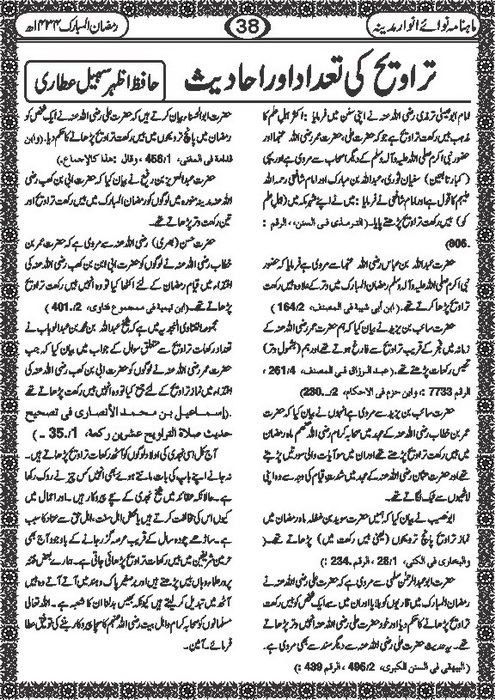 ماہنامہ نوائے انوار مدینہ
38
رمضان المبارک ۱۴۳۴ھ
تراویح کی تعداد اور احادیث
حافظ اظہر سہیل عطاری
امام ابوعیسیٰ ترمذی رضی اللہ عنہ نے اپنی سنن میں فرمایا : اکثر اہل علم کا
مذہب بیس رکعت تراویح ہے جو کہ حضرت علی، حضرت عمر رضی اللہ عنہما اور
حضور نبی اکرم صلی اللہ علیہ وآلہ وسلم کے دیگر اصحاب سے مروی ہے اور یہی
(کبار تابعین) سفیان ثوری، عبداللہ بن مبارک اور امام شافعی رحمۃ اللہ
علیہم کا قول ہے اور امام شافعی نے فرمایا : میں نے اپنے شہر مکہ میں (اہل علم
کو) بیس رکعت تراویح پڑھتے پایا۔ (الترمذی فی السنن، الرقم :
806.
حضرت عبداللہ بن عباس رضی اللہ عنہما سے مروی ہے فرمایا کہ حضور
نبی اکرم صلی اللہ علیہ وآلہ وسلم رمضان المبارک میں وتر کے علاوہ بیس رکعت
تراویح پڑھا کرتے تھے۔ (ابن أبي شيبة في المصنف، 2/164)
حضرت سائب بن یزید نے بیان کیا کہ ہم حضرت عمر رضی اللہ عنہ کے
زمانہ میں فجر کے قریب تراویح سے فارغ ہوتے تھے اور ہم (بشمول وتر)
تئیس رکعات پڑھتے تھے۔ (عبد الرزاق في المصنف، 4/261،
الرقم : 7733، وابن حزم في الاحكام، 2/230.)
حضرت سائب بن یزید سے مروی ہے انہوں نے بیان کیا کہ حضرت
عمر بن خطاب رضی اللہ عنہ کے عہد میں صحابہ کرام رضی اللہ عنہم ماہ رمضان
میں بیس رکعت تراویح پڑھتے تھے اور ان میں سو آیات والی سورتیں پڑھتے
تھے اور حضرت عثمان رضی اللہ عنہ کے عہد میں شدت قیام کی وجہ سے وہ اپنی
لاٹھیوں سے ٹیک لگاتے تھے۔
ابوخصیب نے بیان کیا کہ ہمیں حضرت سوید بن غفلہ ماہ رمضان میں
نماز تراویح پانچ ترویحوں (یعنی بیس رکعت میں) پڑھاتے تھے۔ (
والبخاري في الكنى، 1/28، الرقم : 234.)
حضرت ابوعبدالرحمٰن سلمی سے مروی ہے کہ حضرت علی رضی اللہ عنہ نے
رمضان المبارک میں قاریوں کو بلایا اور ان میں سے ایک شخص کو بیس رکعت
تراویح پڑھانے کا حکم دیا اور خود حضرت علی رضی اللہ عنہ انہیں وتر پڑھاتے
تھے۔ یہ حدیث حضرت علی رضی اللہ عنہ سے دیگر سند سے بھی مروی ہے۔
البيهقي في السنن الكبرى، 2/496، الرقم : 439
حضرت ابوالحسناء بیان کرتے ہیں کہ حضرت علی رضی اللہ عنہ نے ایک شخص کو
رمضان میں پانچ ترویحوں میں بیس رکعت تراویح پڑھانے کا حکم دیا۔ (وابن
قدامة في المغني، 1/456، وقال : هذا كالإجماع.)
حضرت عبدالعزیز بن رفیع نے بیان کیا کہ حضرت ابی بن کعب رضی
اللہ عنہ مدینہ منورہ میں لوگوں کو رمضان المبارک میں بیس رکعت تراویح اور
تین رکعت وتر پڑھاتے تھے۔
حضرت حسن (بصری) رضی اللہ عنہ سے مروی ہے کہ حضرت عمر بن
خطاب رضی اللہ عنہ نے لوگوں کو حضرت ابی بن کعب رضی اللہ عنہ کی
اقتداء میں قیام رمضان کے لئے اکٹھا کیا تو وہ انہیں بیس رکعت تراویح
پڑھاتے تھے۔ (ابن تيمية في مجموع فتاوى، 2/401.)
مجموعۃ الفتاویٰ النجدیہ میں ہے کہ شیخ عبداللہ بن محمد بن عبدالوہاب نے
تعداد رکعات تراویح سے متعلق سوال کے جواب میں بیان کیا کہ جب
حضرت عمر رضی اللہ عنہ نے لوگوں کو حضرت ابی بن کعب رضی اللہ عنہ کی
اقتداء میں نماز تراویح کے لئے جمع کیا تو وہ انہیں بیس رکعت پڑھاتے تھے
۔ (إسماعيل بن محمد الأنصاري في تصحيح
حديث صلاة التراويح عشرين ركعة، 1/35.)
آج کل اسی نجدی کی اولاد لوگوں کو آٹھ رکعات تراویح پڑھاتے ہیں۔
نہ جانے اپنے باپ کی بات مانتے ہوئے بھی انہیں کس چیز نے روک رکھا
ہے۔ حالانکہ عقائد میں شیخ نجدی کے سچے پیروکار ہیں۔ اور اعمال میں
کیوں اس کی مخالفت کرتے ہیں یا محض اہل سنت، اہل حق سے عناد کا سبب
ہے۔ ساڑھے چودہ سال کے قریب عرصہ گزر جانے کے باوجود آج بھی
حرمین شریفین میں بیس رکعات تراویح پڑھائی جاتی ہے۔ ہمارے بعض فتنہ
آٹھ میں تبدیل کر لیتے ہیں کیونکہ بیس پڑھنا ان کا شعبہ ہے ۔ اللہ تعالیٰ
مسلمانوں کو صحابہ کرام و اہل بیت رضی اللہ عنہم کا سچا پیروکار بننے کی توفیق عطا
فرمائے۔ آمین۔